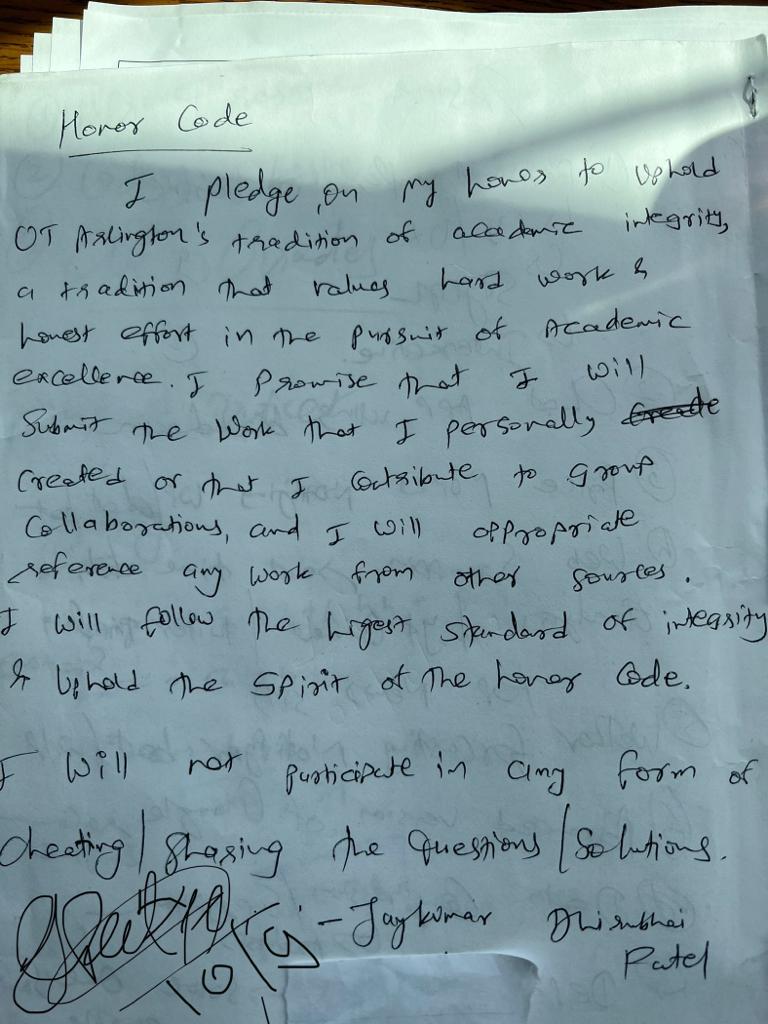 Honor Code
I pledge, on my honor to uphold
UT Arlington's tradition of academic integrity,
a tradition that values hard work &
honest effort in the pursuit of Academic
excellence. I promise that I will
Submit the work that I personally Create
Created or that I Cotribute to group
Collaborations, and I will appropriate
reference any work from other sources.
I will follow the higest standard of integrity
& Uphold the Spirit of the honor Code.
I will not participate in any form of
Cheating/Sharing the Questions/Solutions.
- Jaykumar Dhirubhai
Patel